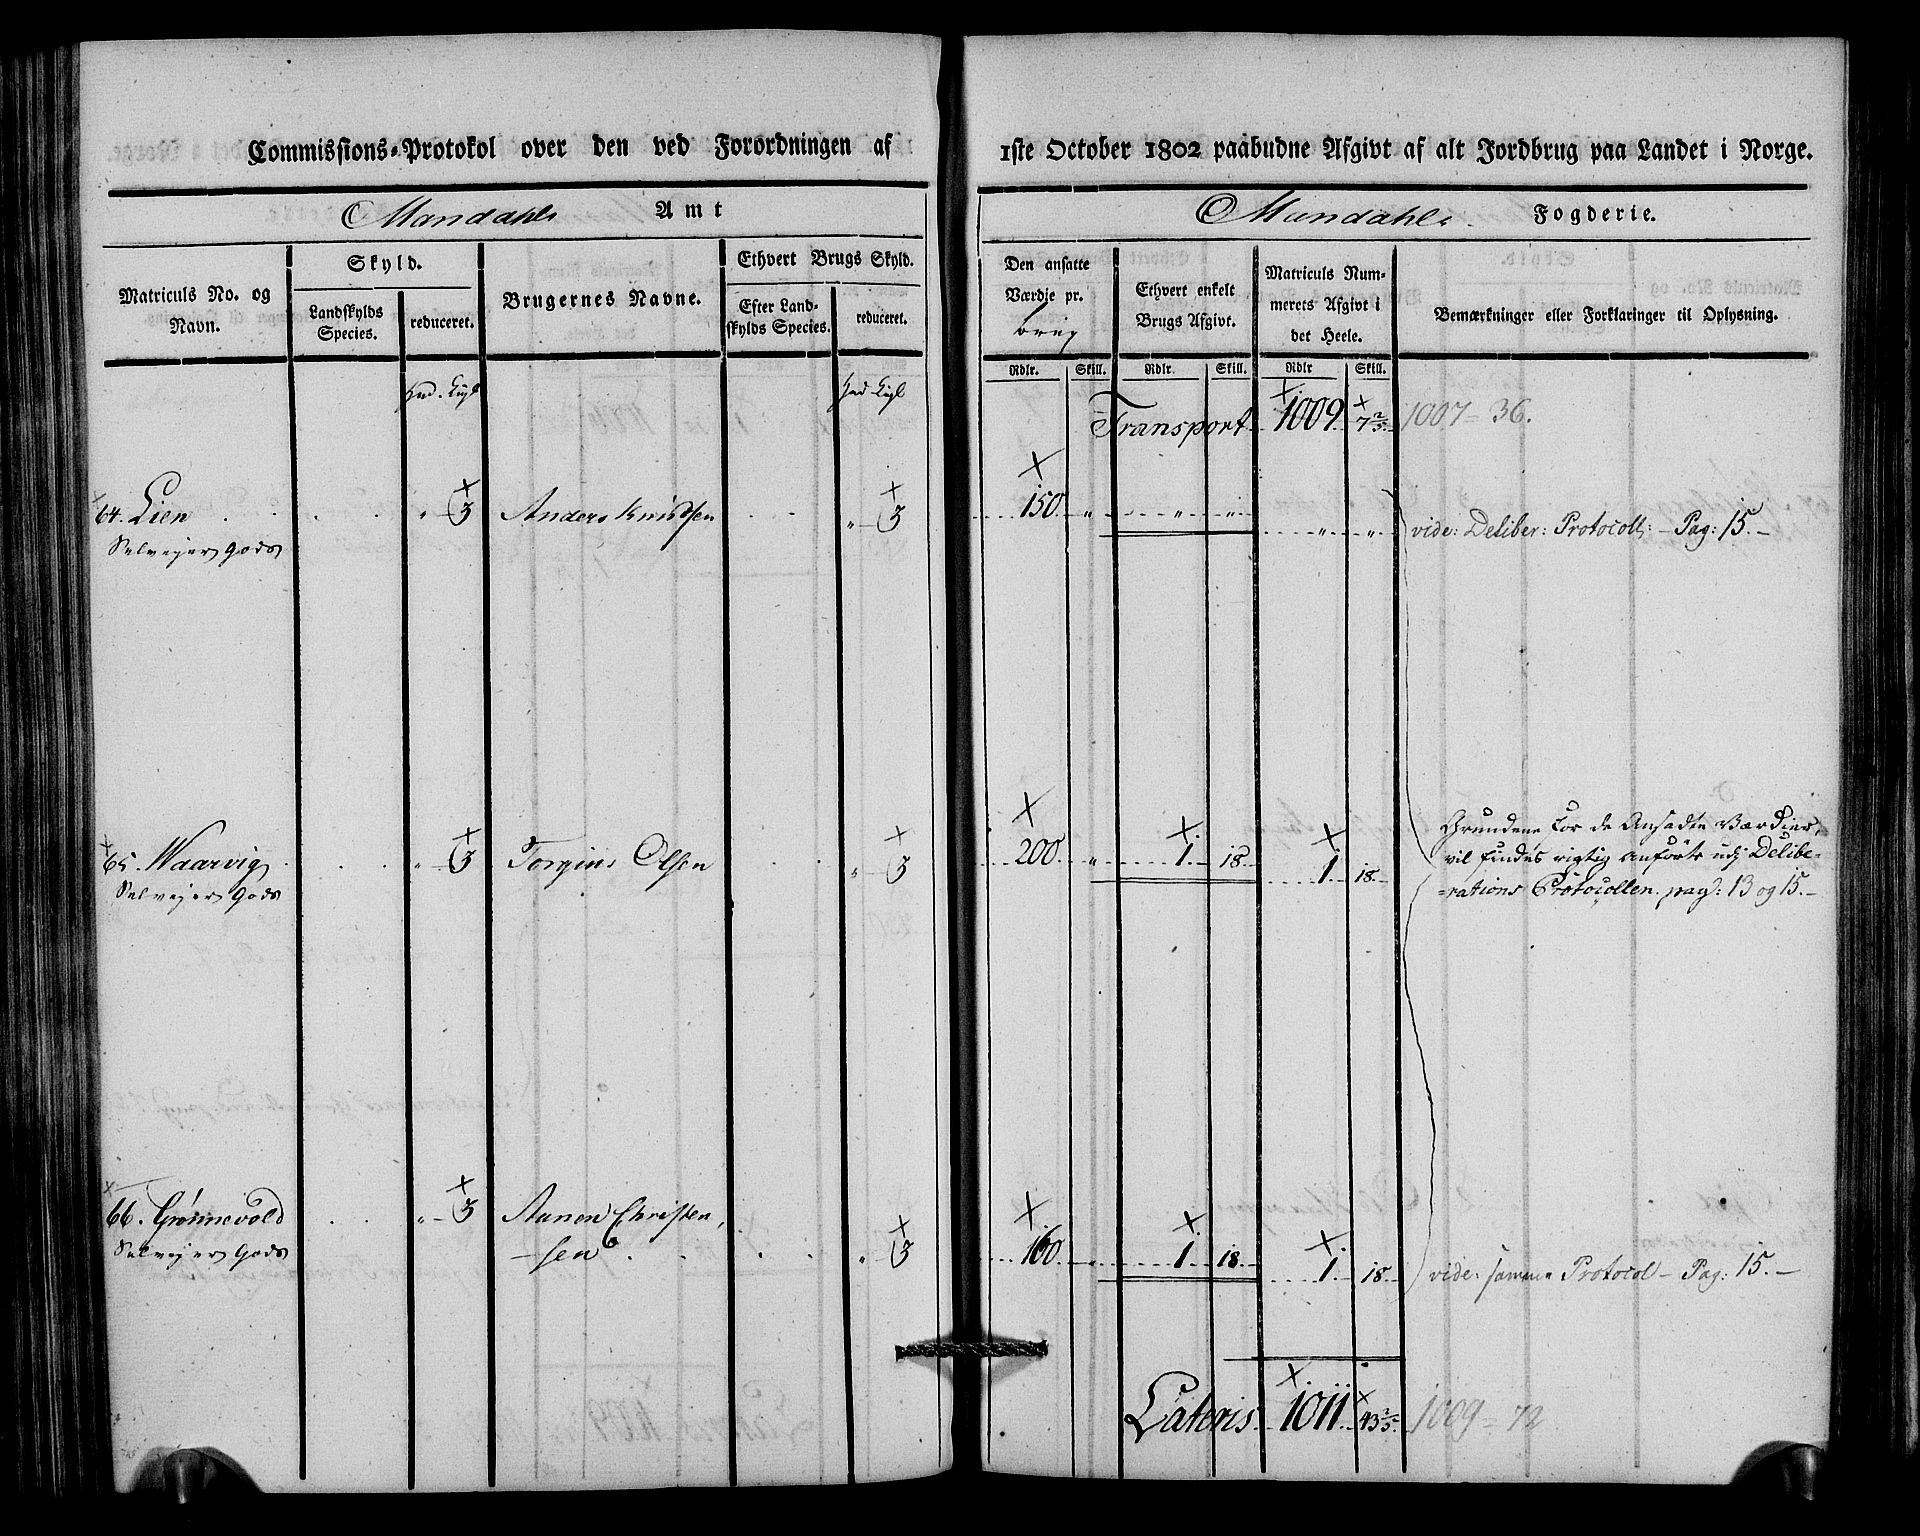 Commissions-Protokol over den ved Forordningen af
Mandahls Amt
Matriculs No. og Navn.
Skyld.
Landskylds Species.
reduceret.
Brugernes Navne.
Ethvert Brugs Skyld.
Efter Landskylds Species.
reduceret.
64. Lien . . . . " - 3 Anders Knudsen . . " - 3
Selvejer Gods
65. Waarvig . . . " - 3 Torgius Olsen . . " - 3
Selvejer Gods
66. Grönnevold . . " - 3 Aanon Christen
Selvejer Gods -sen . . . . " - 3
1ste October 1802 paabudne Afgivt af alt Jordbrug paa Landet i Norge.
Mandahls Fogderie.
Den ansatte Værdie pr. brug
Ethvert enkelt Brugs Afgivt.
Matriculs Nummerets Afgivt i det Heele.
Bemærkninger eller Forklaringer til Oplysning.
Rdlr. Skill. Rdlr. Skill. Rdlr Skill.
Transport 1009 7 2/5 1007 = 36.
150 " " " " " vide: Deliber: Protocoll: - Pag: 15. -
Grundene for de Ansadte Værdier,
200 " 1. 18. 1. 18. vil findes rigtig anförte udj Delibe-
-rations Protocollen pag: 13 og 15. -
160 " 1. 18. 1. 18. vide: samme Protocol - Pag: 15. -
Lateris 1011 43 2/5 1009 = 72